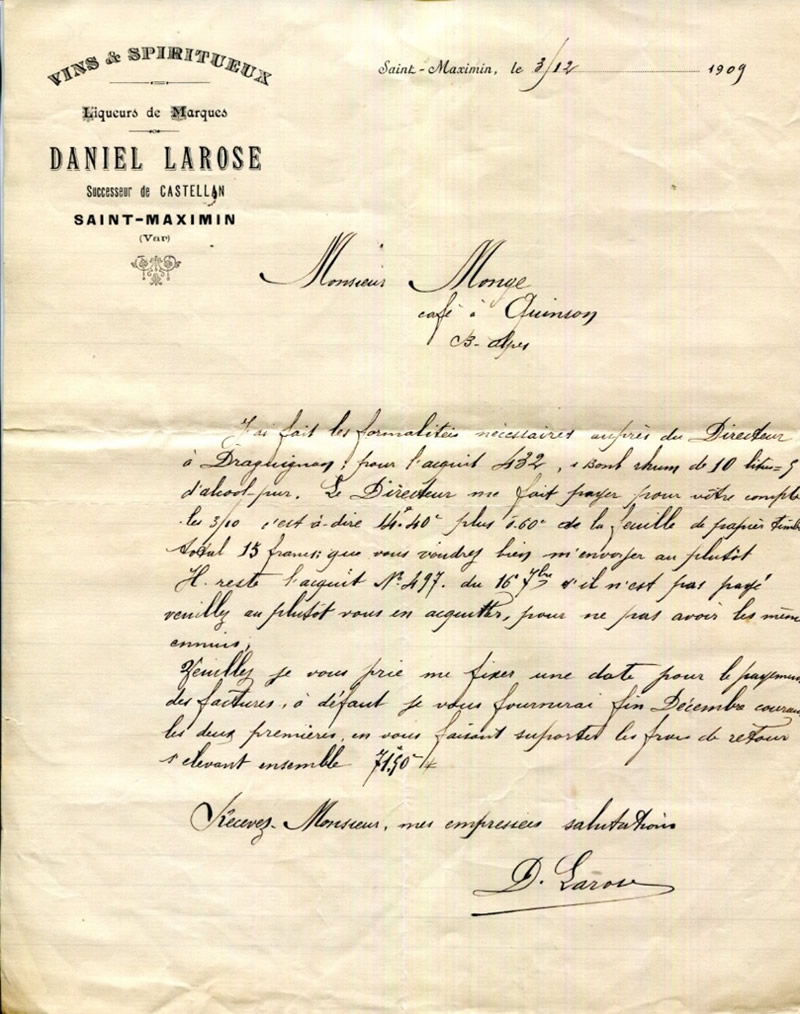 VINS & SPIRITUEUX
Liqueurs de Marques
DANIEL LAROSE
Successeur de CASTELLAN
SAINT-MAXIMIN
(Var)
Saint-Maximin, le 3/12 1909
Monsieur Monge
café à Quinson
B-Alpes
J'ai fait les formalitées nécessaires auprès du Directeur
à Draguignan; pour l'acquit 432, 1 Bonb rhum de 10 litres = 5
d'alcool pur. Le Directeur me fait payer pour vôtre compte
les 3/10 c'est à-dire 14f.40c plus 0.60c de la feuille de papier timb
total 15 francs; que vous voudrez bien m'envoyer au plutôt
Il reste l'acquit No 497. du 16 7bre s'il n'est pas payé
veuillez au plutôt vous en acquitter, pour ne pas avoir les mêm
ennuis,
Veuillez je vous prie me fixer une date pour le payemen
des factures, à défaut je vous fournerai fin Décembre couran
les deux premières, en vous faisant suporter les frais de retour
s'elevant ensemble 71f.50c
Recevez Monsieur, mes empressées salutations
D. Larose